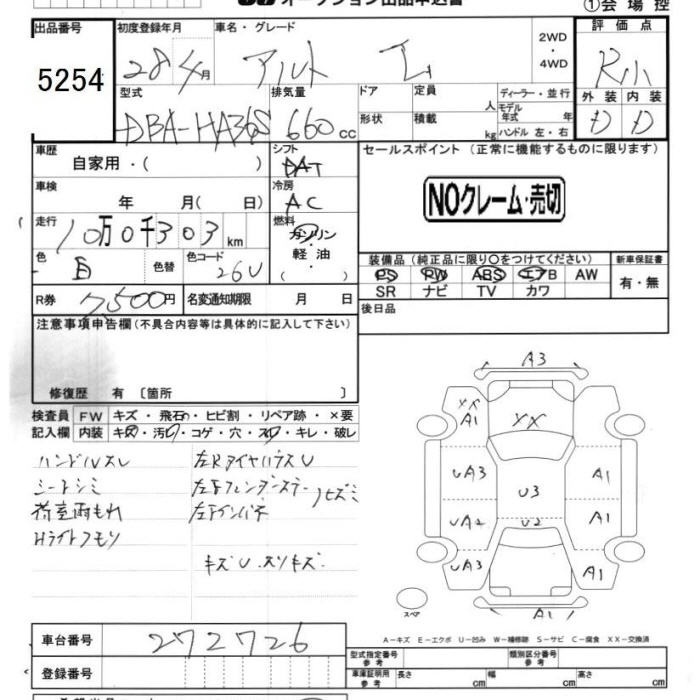 オークション出品申込書
①会場控
出品番号 初度登録年月 車名・グレード 2WD ・ 4WD 評価点
5254 28年4月 アルト L R小
型式 排気量 ドア 定員 人 ディーラー・並行 外装 内装
DBA-HA36S 660cc 形状 積載 kg モデル年式 年 ハンドル 左・右 D D
車歴 シフト セールスポイント (正常に機能するものに限ります)
自家用・( ) DAT
車検 冷房
年 月( 日) AC NOクレーム・売切
走行 燃料
10万0千303km ガソリン・軽油・( )
色 色替 色コード 装備品 (純正品に限り○をつけてください) 新車保証書
白 26U PS PW ABS エアB AW 有・無
SR ナビ TV カワ
R券 7500円 名変通知期限 月 日 後日品
注意事項申告欄(不具合内容等は具体的に記入して下さい)
修復歴 有 〔箇所 〕
検査員 FW キズ・飛石・ヒビ割・リペア跡・×要
記入欄 内装 キズ・汚レ・コゲ・穴・スレ・キレ・破レ
ハンドルスレ 左RタイヤハウスU
シートシミ 左Fフェンダーステー
荷室雨もれ 左Fインパネ ハヒズミ
Hライトクモリ
キズU スリキズ
A3
XX
A1 XX
UA3 U3 A1
UA2 U2 A1
UA3 A1
スペア A1
A-キズ E-エクボ U-凹み W-補修跡 S-サビ C-腐食 XX-交換済
車台番号 272726
登録番号
型式指定番号 参考 類別区分番号 参考
車庫証明用 参考 長さ cm 幅 cm 高さ cm